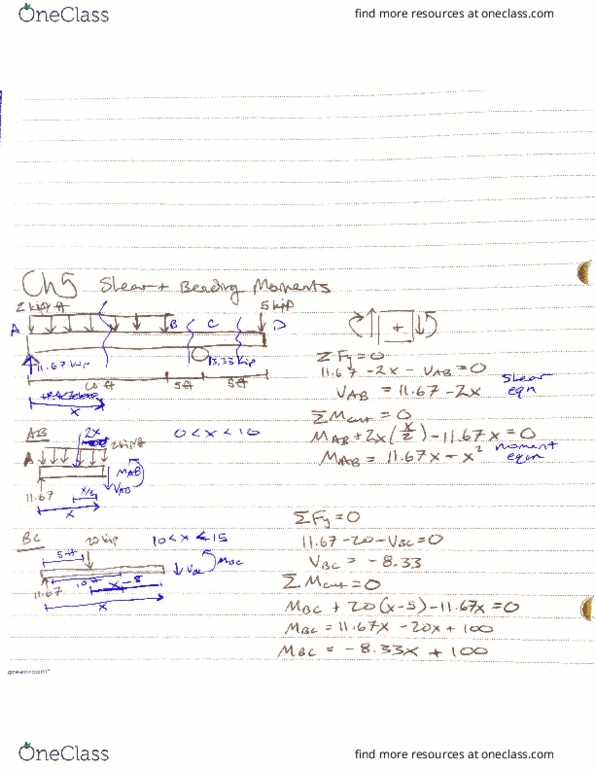 OneClass
find more resources at oneclass.com
Ch 5 Shear + Bending Moments
2 kip/ft
5 kip
A
B
C
D
11.67 kip
13.33 kip
10 ft
5 ft
5 ft
x
+
ΣFy = 0
11.67 - 2x - VAB = 0
VAB = 11.67 - 2x
shear eqn
ΣMcut = 0
MAB + 2x(x/2) - 11.67x = 0
MAB = 11.67x - x²
moment eqn
AB
2x
0 < x < 10
2 kip/ft
A
MAB
VAB
11.67
x/2
x
BC
20 kip
10 < x < 15
5 ft
VBC
MBC
10 ft
x-5
11.67
x
ΣFy = 0
11.67 - 20 - VBC = 0
VBC = -8.33
ΣMcut = 0
MBC + 20(x-5) - 11.67x = 0
MBC = 11.67x - 20x + 100
MBC = -8.33x + 100
greenroom
OneClass
find more resources at oneclass.com